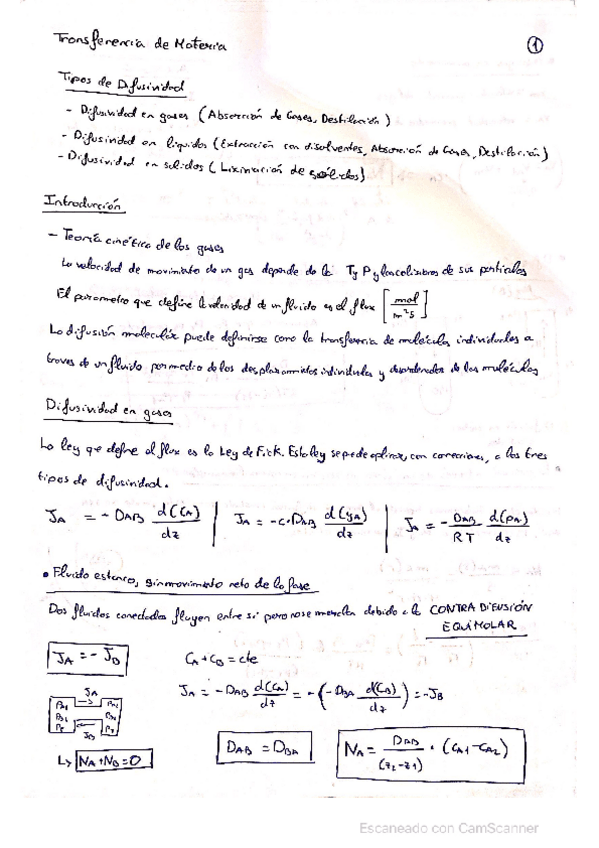 Transferencia de Materia
1
Tipos de Difusividad
- Difusividad en gases (Absorción de Gases, Destilación)
- Difusividad en liquidos (Extracción con disolventes, Absorción de Gases, Destilación)
- Difusividad en solidos (Lixiviación de sólidos)
Introducción
- Teoría cinética de los gases
La velocidad de movimiento de un gas depende de la T y P y las colisiones de sus particulas
El parametro que define la velocidad de un fluido es el flux [mol/m²s]
La difusión molecular puede definirse como la transferencia de moléculas individuales a
traves de un fluido por medio de los desplazamientos individuales y desordenados de las moléculas
Difusividad en gases
La ley que define el flux es la Ley de Fick. Esta ley se puede aplicar, con correcciones, a los tres
tipos de difusividad.
J_A = - D_AB d(C_A)/dz | J_A = -c·D_AB d(y_A)/dz | J_A = - D_AB/RT d(p_A)/dz
• Fluido estanco, sin movimiento neto de la fase
Dos fluidos conectados fluyen entre si pero no se mezclan debido a la CONTRADIFUSIÓN
EQUIMOLAR
J_A = - J_B
C_A + C_B = cte
J_A = - D_AB d(C_A)/dz = - (- D_BA d(C_B)/dz) = - J_B
J_A
P_A1 P_A2
P_B1 P_B2
P_T P_T
J_B
N_A + N_B = 0
D_AB = D_BA
N_A = D_AB/(z2-z1) · (C_A1 - C_A2)
Escaneado con CamScanner